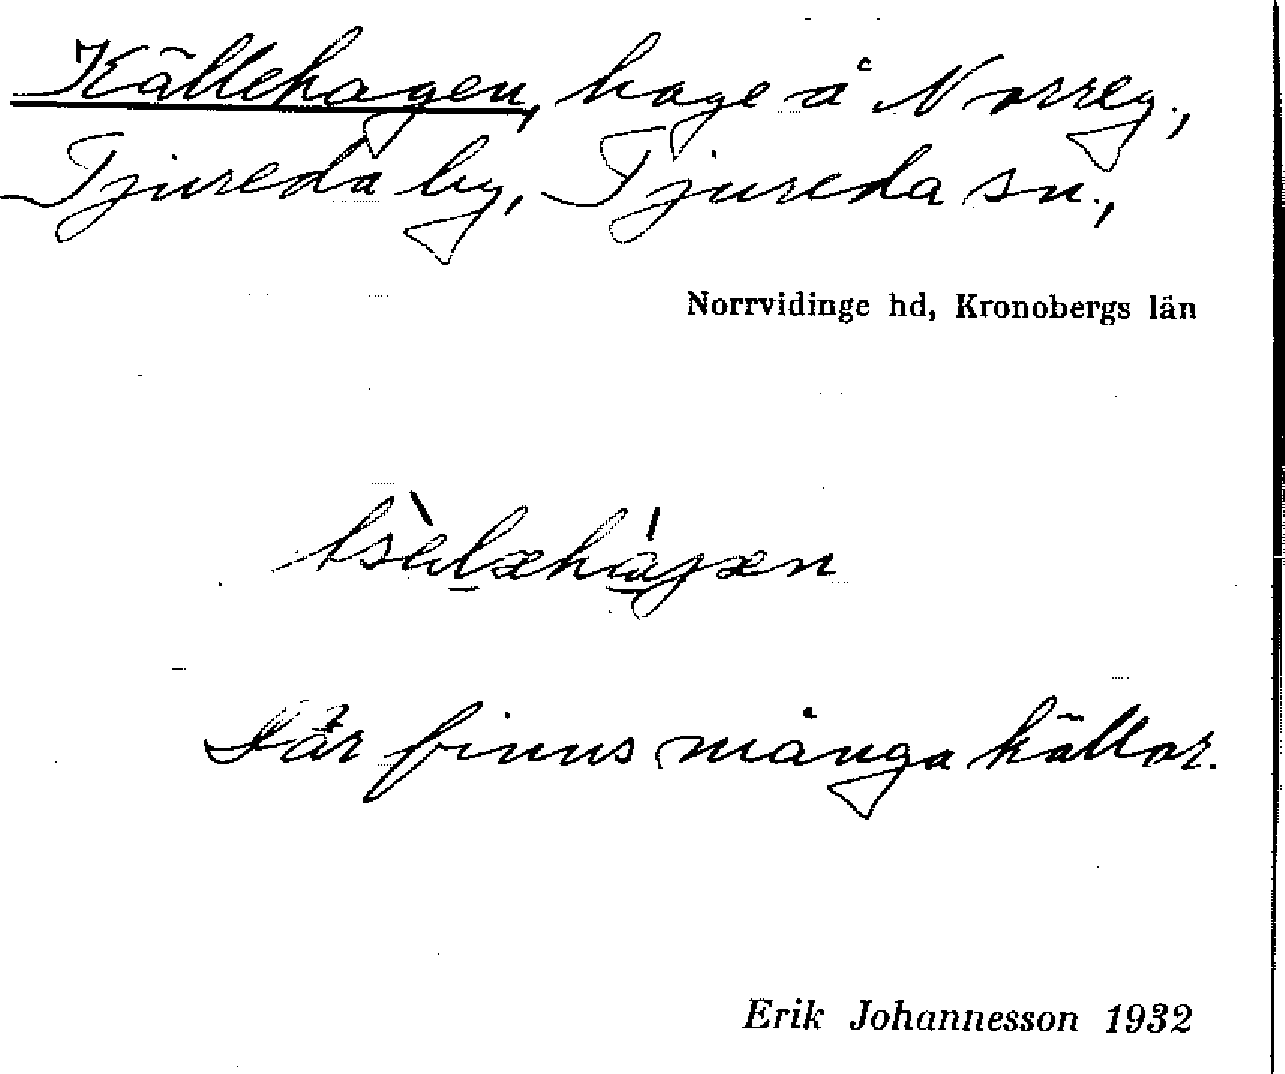 Källehagen, hage å Norreg.,
Tjureda by, Tjureda sn.,
Norrvidinge hd, Kronobergs län
Där finns många källor.
Erik Johannesson 1932